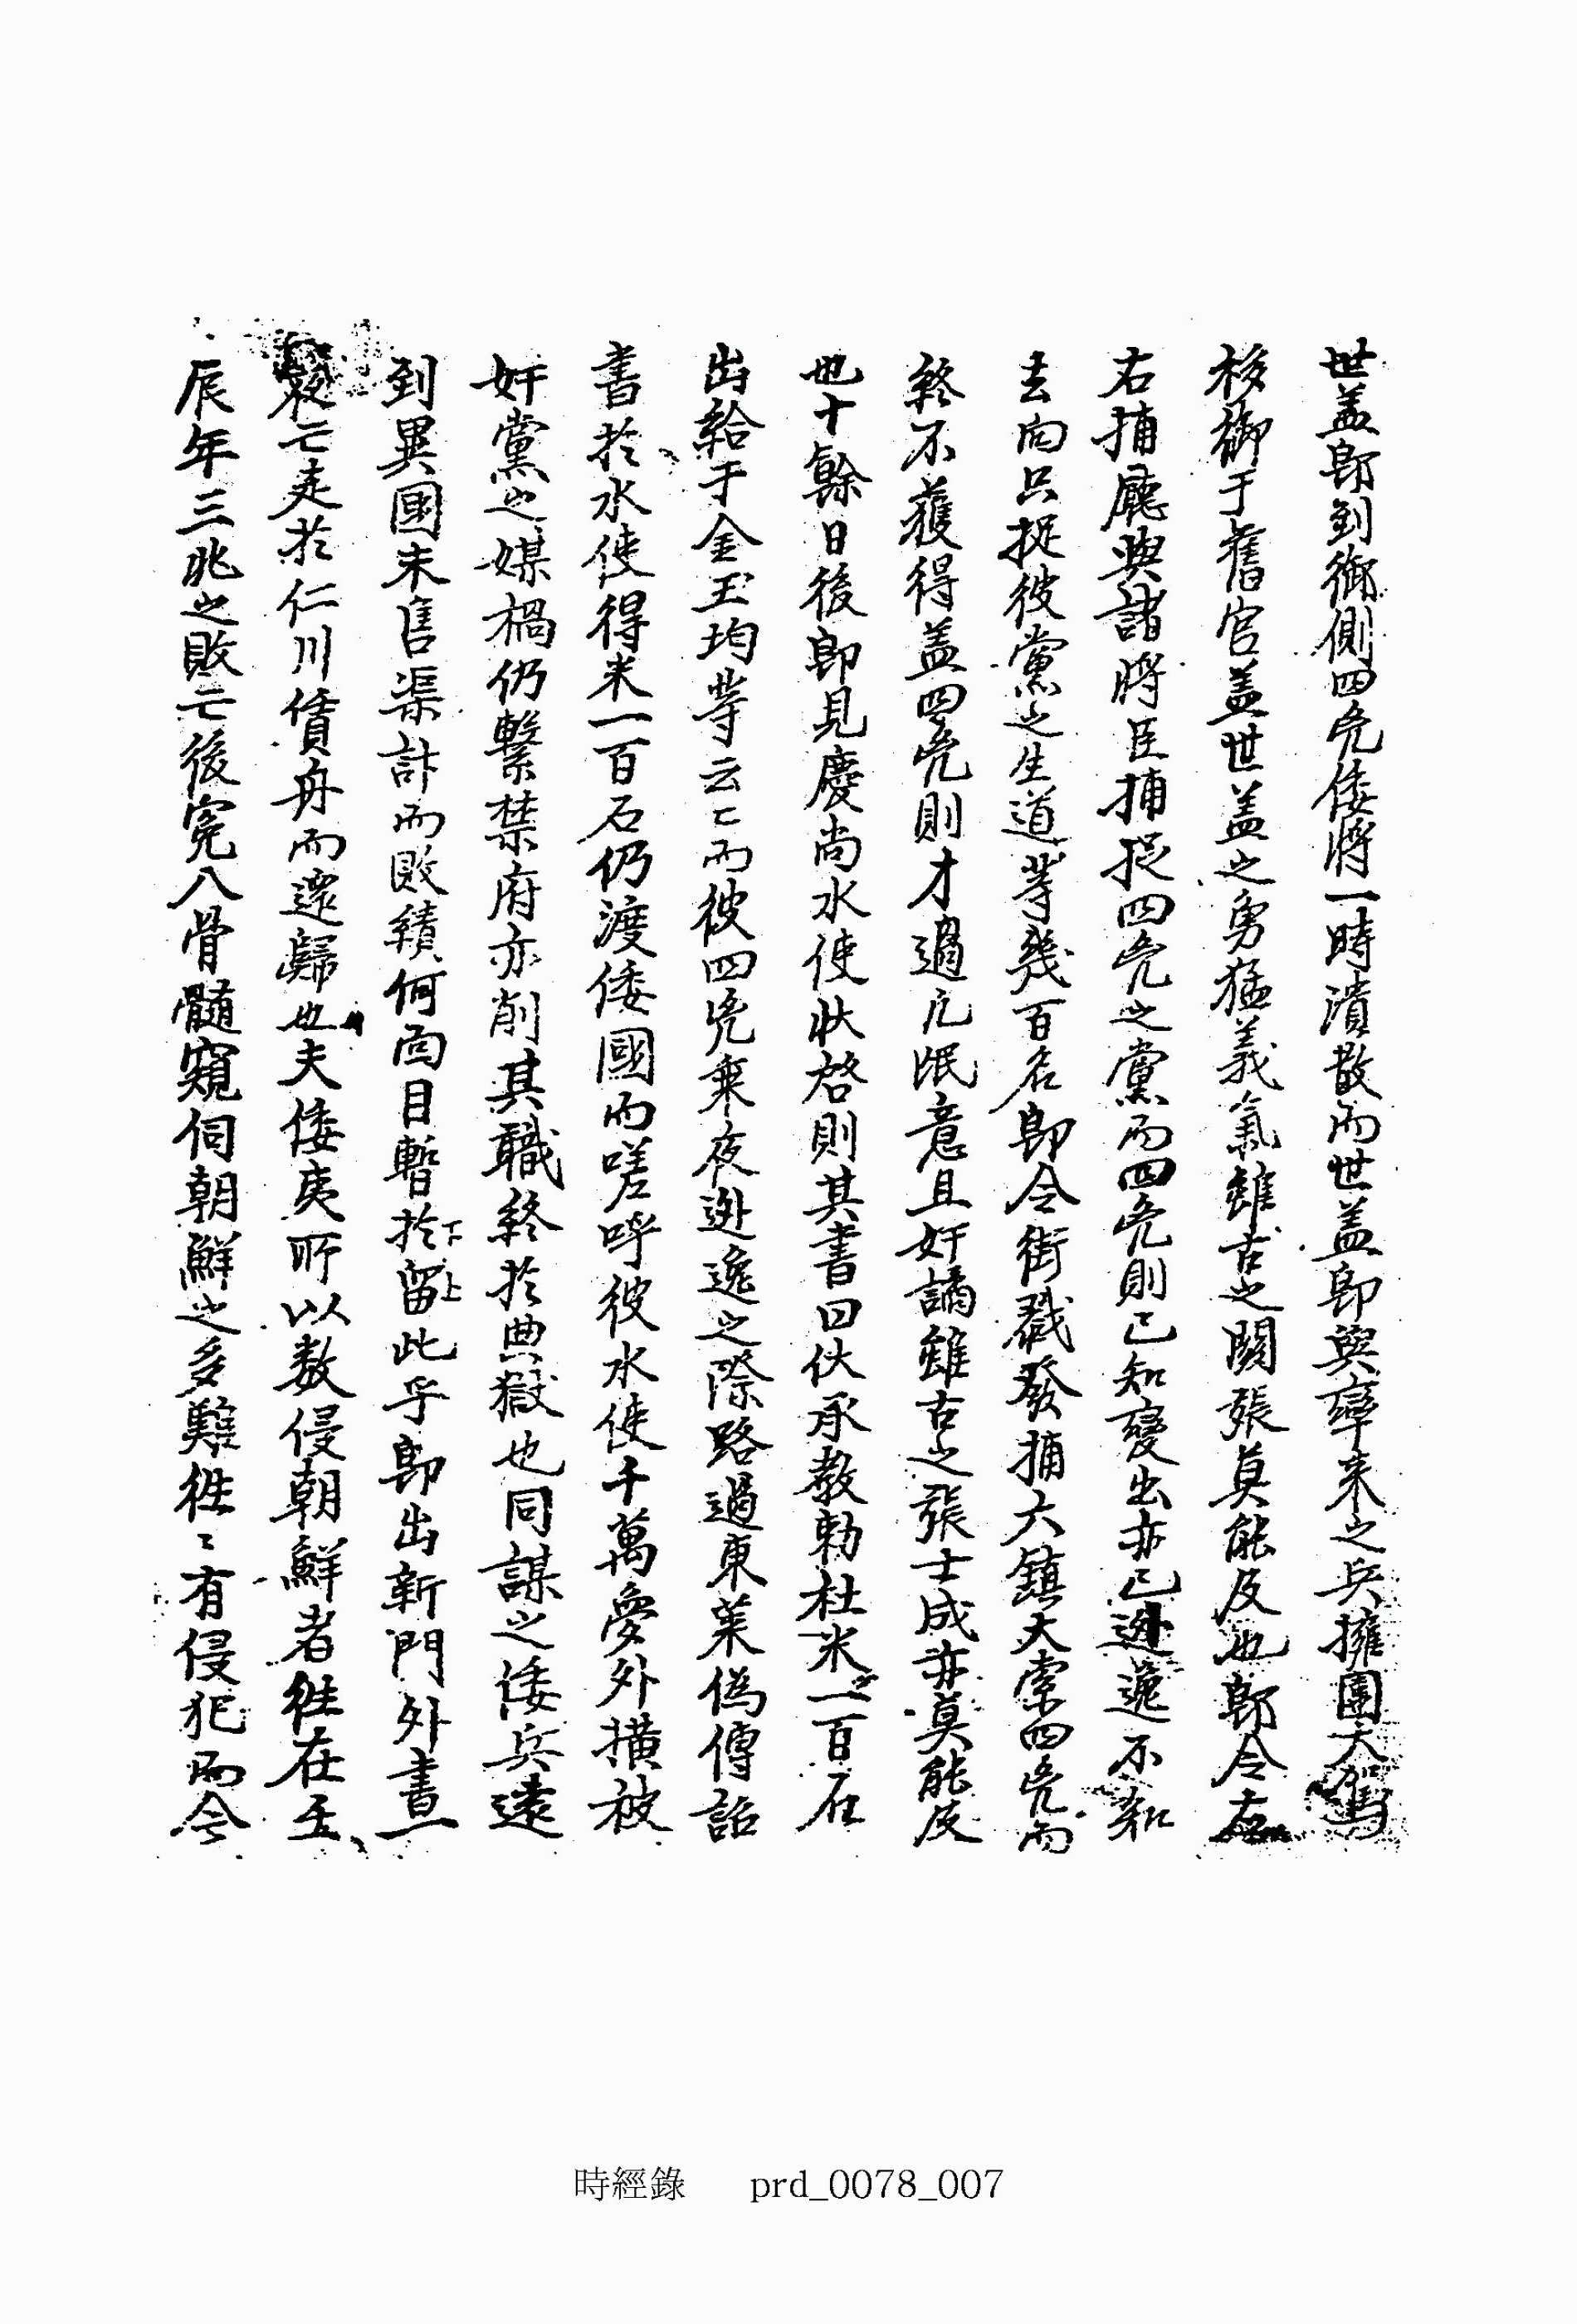 世盖郎到御側四兇倭將一時潰散而世盖郎與牽来之兵擁圍大駕
移御于舊宮盖世盖之勇猛義氣雖古之関張莫能及也郎令左
右捕廳與諸將臣捕捉四兇之黨而四兇則已知變出亦已逊逸不知
去向只捉彼黨之生道等幾百名郎令街戮發捕六鎭大索四兇而
終不獲得盖四兇則才過凡氓意且奸譎雖古之張士成亦莫能及
也十餘日後郎見慶尚水使狀啓則其書曰伏承教勅杜米一百石
出給于金玉均等云〻而彼四兇乘夜逊逸之際路過東萊僞傳詔
書於水使得米一百石仍渡倭國而嗟呼彼水使千萬夢外橫被
奸黨之媒禍仍繫禁府亦削其職終於典獄也同謀之倭兵遠
到異國未售渠計而敗績何面目暫於留此乎郎出新門外晝一
夜亡走於仁川賃舟而還歸也夫倭夷所以數侵朝鮮者徃在壬
辰年三兆之敗亡後寃入骨髓窺伺朝鮮之多難徃〻有侵犯而今
時經錄 prd_0078_007